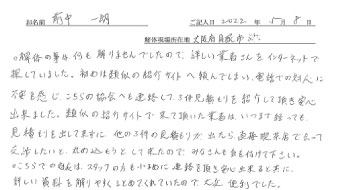 お名前 前中 一朗 ご記入日 2022年 5月 8日
解体現場所在地 大阪府貝塚市
○解体の事は何も解りませんでしたので、詳しい業者さんをインターネットで
探していました。初めは類似の紹介サイトへ頼んでしまい、電話での対応に
不安を感じ、こちらの協会へも連絡して3件見積もりを紹介して頂き安心
出来ました。類似の紹介サイトで来て頂いた業者は、いつまで経っても
見積もりを出してまずに、他の3件の見積もりが出たら、直接現場で会って
交渉したいと、丸め込もうとして来たので、みなさんも気を付けて下さい。
○こちらでの自分は、スタッフの方も小まめに連絡を頂き安心出来ると共に、
詳しい資料を解りやすくまとめてくれていたので大変便利でした。